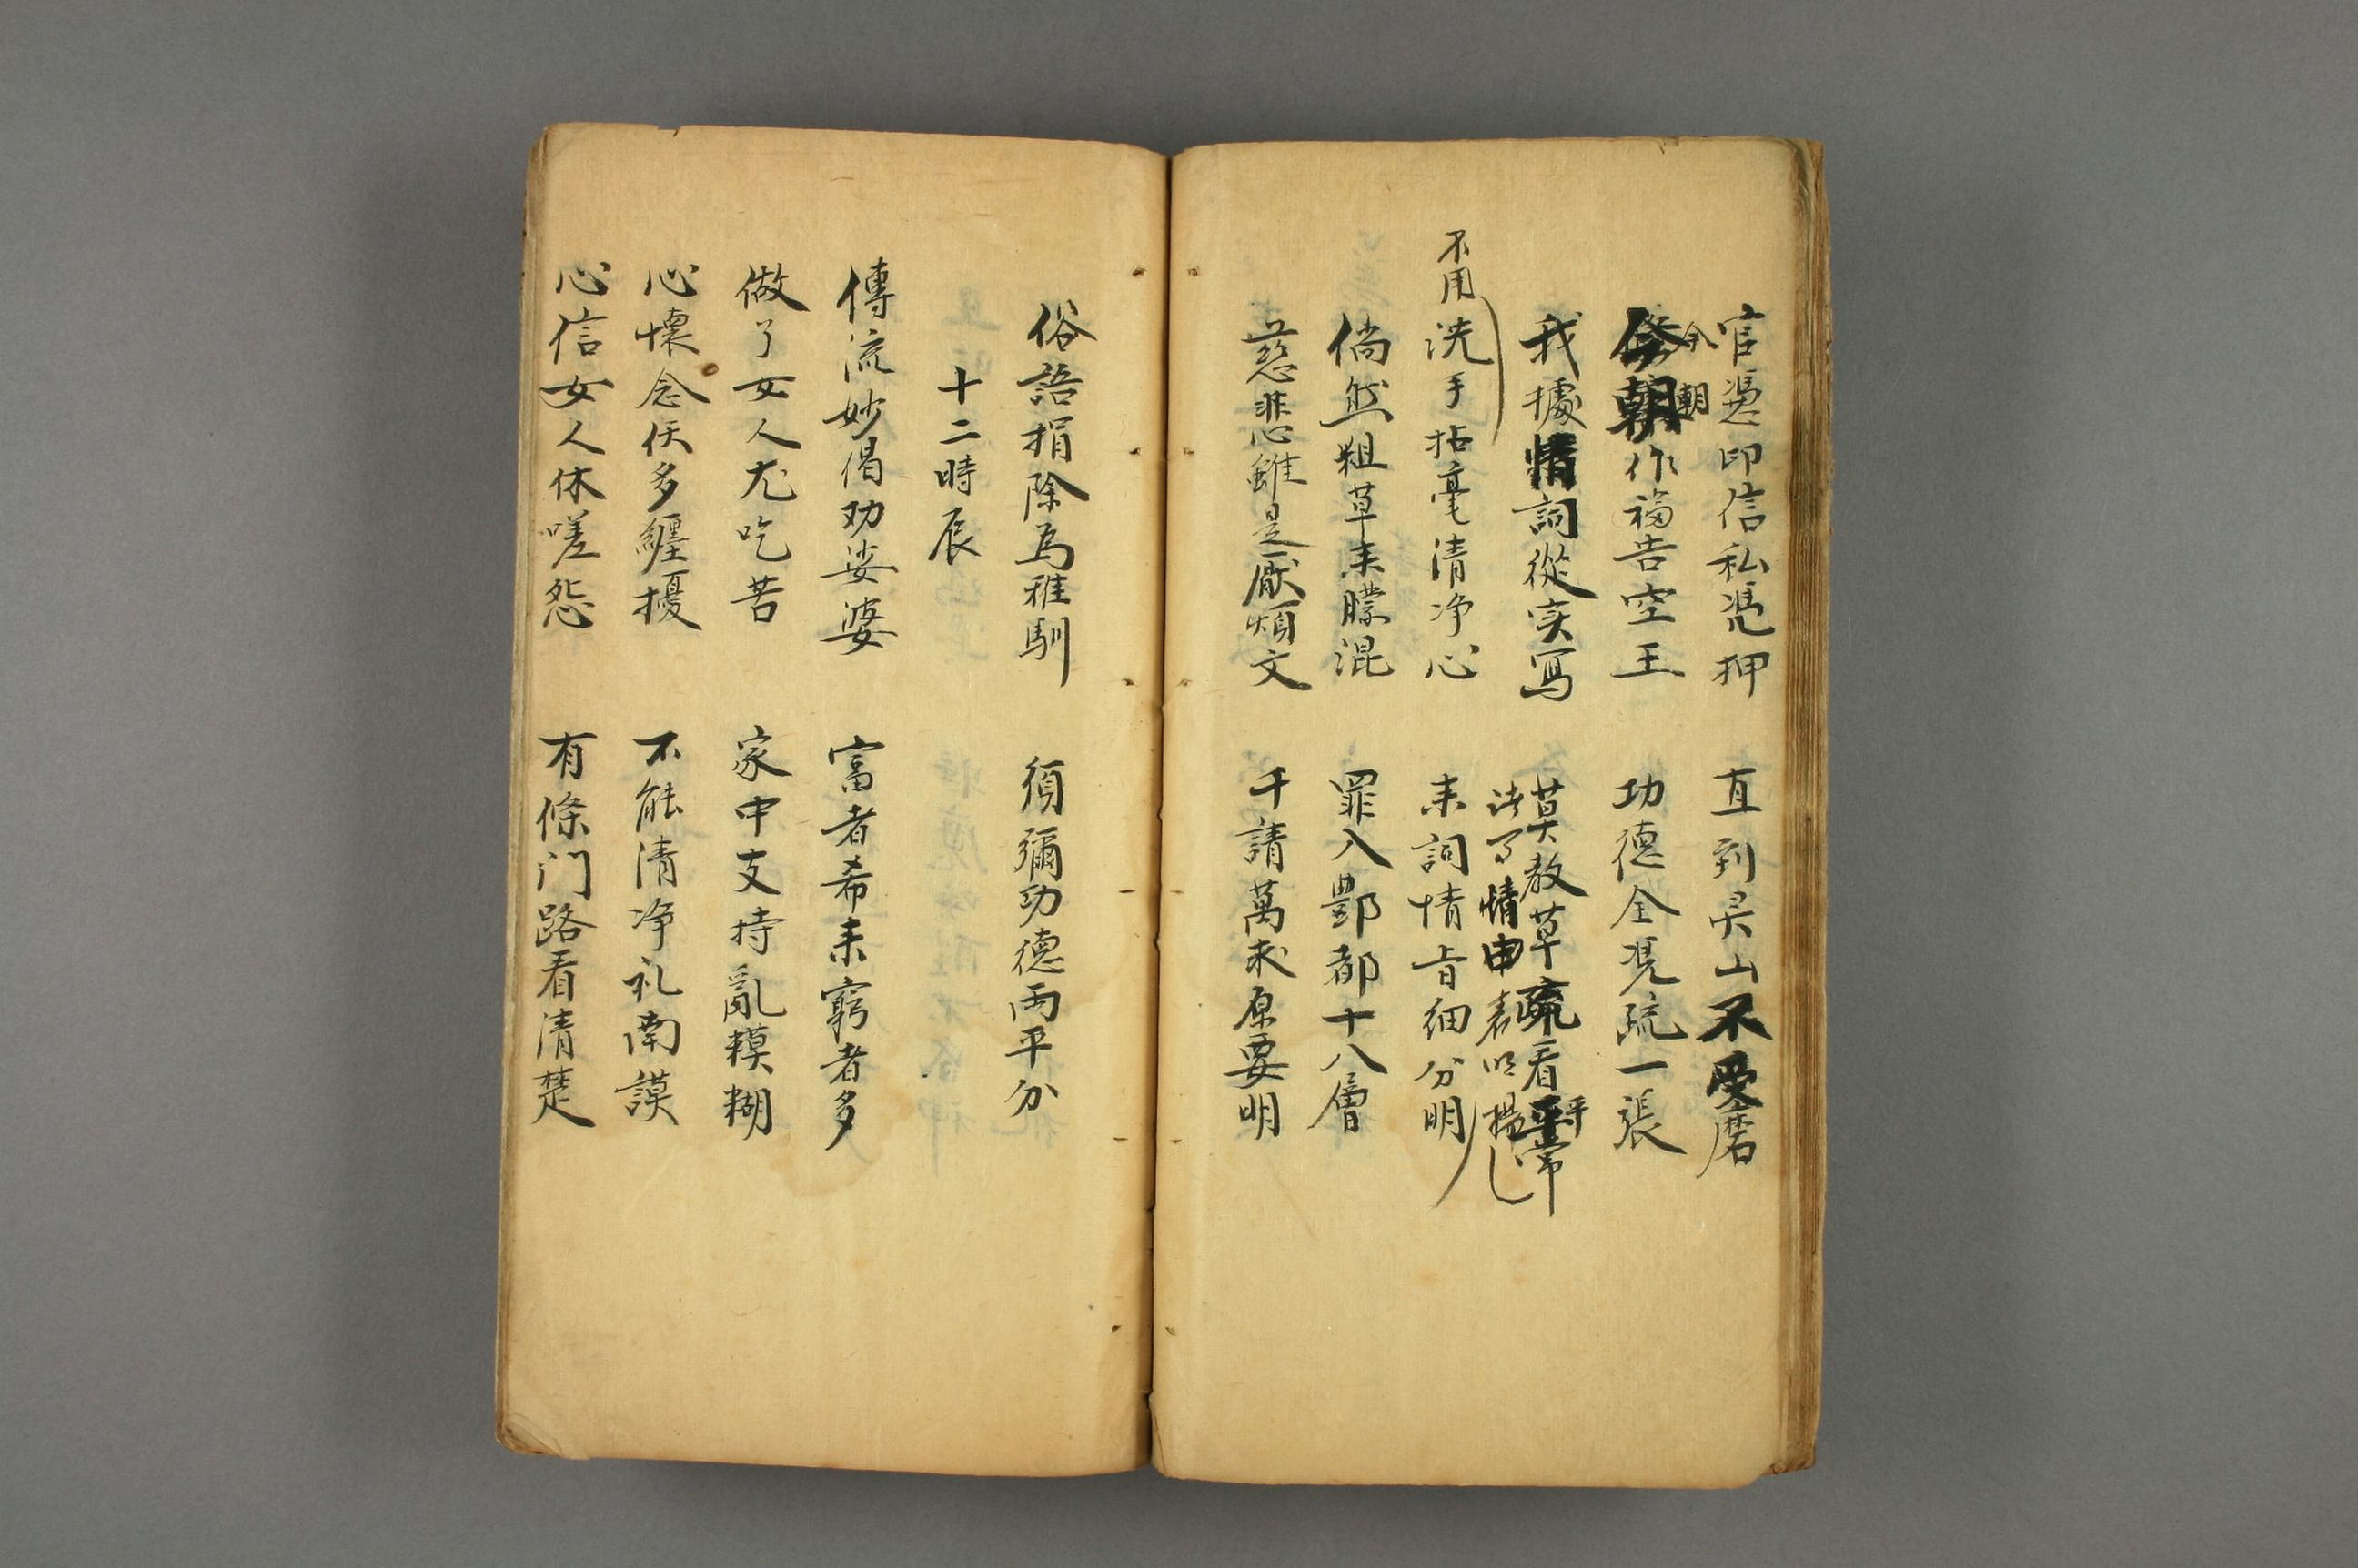 官憑印信私憑押　直到灵山不受磨
今朝
今朝作福告空王　功德全凭疏一張
我據情詞從实寫　莫教草疏看平常
平
情申表
不用
洗手拈毫清净心　来詞情旨细分明
倘然粗草来朦混　罪入酆都十八層
慈悲雖是厭煩文　千請萬求原要明
俗語捐除為雅馴　須彌功德両平分
十二時辰
傳流妙偈劝娑婆　富者希来窮者多
做了女人尤吃苦　家中支持亂糢糊
心懷念佛多纏擾　不能清净礼南謨
心信女人休嗟怨　有條门路看清楚